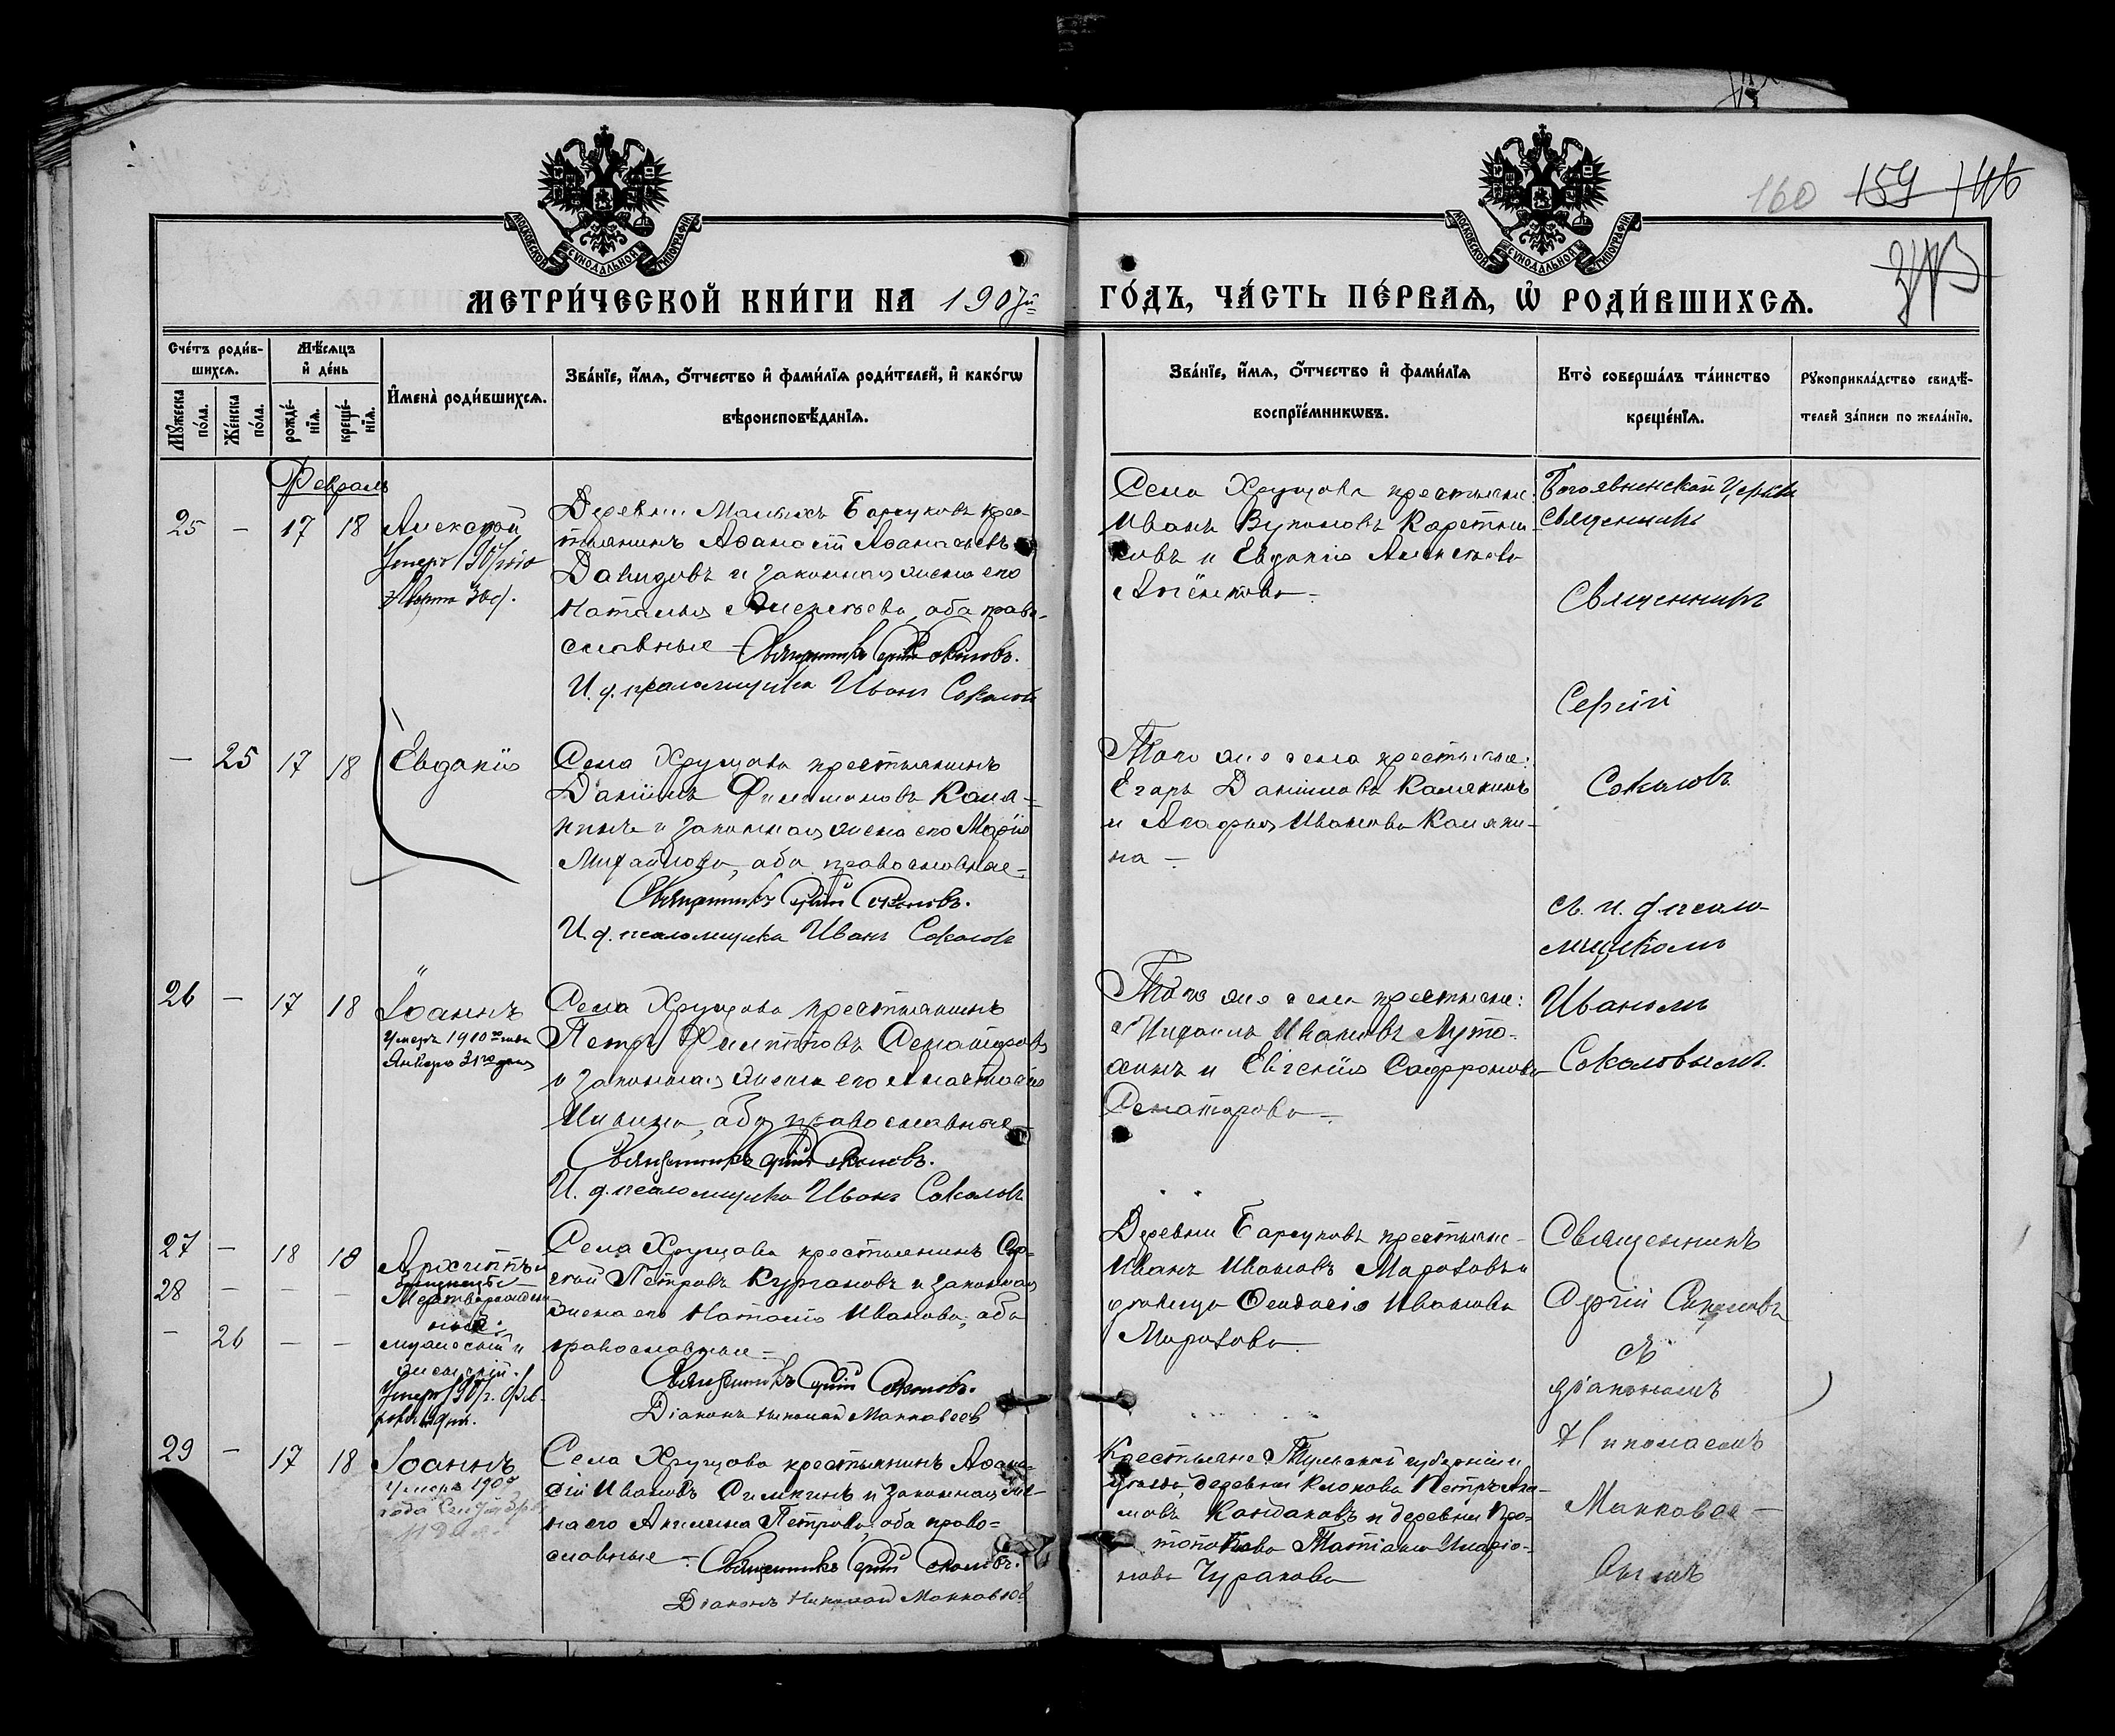 160 159
МОСКОВСКОЙ СѴНОДАЛЬНОЙ ТИПОГРАФІИ
МОСКОВСКОЙ СѴНОДАЛЬНОЙ ТИПОГРАФІИ
МЕТРИ́ЧЕСКОЙ КНИ́ГИ НА 1907й
ГО́ДЪ, ЧА́СТЬ ПЕ́РВАѦ, Ѽ РОДИ́ВШИХСѦ.
Сче́тъ роди́в-
шихсѧ.
Мꙋ́жеска по́ла.
Же́нска по́ла.
Мѣ́сѧцъ
и҆ де́нь
рожде́-
нїѧ.
креще́-
нїѧ.
И҆мена̀ роди́вшихсѧ.
Зва́нїе, и҆́мѧ, ѻ҆́тчество и҆ фами́лїѧ роди́телей, и҆ како́гѡ
вѣроисповѣ́данїѧ.
Зва́нїе, и҆́мѧ, ѻ҆́тчество и҆ фами́лїѧ
воспрїе́мникѡвъ.
Кто̀ соверша́лъ та́инство
креще́нїѧ.
Рꙋкоприкла́дство свидѣ́-
телей за́писи по жела́нїю.
Февраль
25 — 17 18 Алексѣй
Умеръ 1907 года
Деревни Малыхъ Барсуковъ крес-
тьянинъ Аѳанасій Аѳанасьевъ
Давидовъ и законная жена его
Наталья Алексѣева, оба право-
славные —
Священникъ Сергій Соколовъ.
И. д. псаломщика Иванъ Соколовъ
Села Хрущова крестьяне:
Иванъ Вуколовъ Каретни-
ковъ и Евдокія Алексѣева
Богоявленской Церкви
священникъ
Священникъ
Сергій
Соколовъ
съ и. д. псало-
мщикомъ
Иваномъ
Соколовымъ.
— 25 17 18 Евдокія
Села Хрущова крестьянинъ
Даніилъ Филимоновъ Каля-
кинъ и законная жена его Марія
Михайлова, оба православные —
Священникъ Сергій Соколовъ.
И. д. псаломщика Иванъ Соколовъ
Того же села крестьяне:
Егоръ Даниловъ Калякинъ
и Агафья Иванова Каляки-
на —
26 — 17 18 Іоаннъ
Умеръ 1910го года
Января 31го дня
Села Хрущова крестьянинъ
Петръ Филипповъ Сенаторовъ
и законная жена его Анастасія
оба православные —
Священникъ Сергій Соколовъ.
И. д. псаломщика Иванъ Соколовъ
Того же села крестьяне:
Михаилъ Ивановъ Луто-
хинъ и Евгенія Сафронова
Сенаторова —
27 — 18 18 Архиппъ
28 — — —
— 26 — —
Мертворожден-
ные:
мужескій и
женскій.
Села Хрущова крестьянинъ Сер-
гѣй Петровъ Кургановъ и законная
жена его Наталія Иванова, оба
православные —
Священникъ Сергій Соколовъ.
Діаконъ Николай Маккавеевъ
Деревни Барсуковъ крестьяне
Иванъ Ивановъ Мороховъ и
дѣвица Ѳеодосія Иванова
Морохова
Священникъ
Сергій Соколовъ
съ
діакономъ
Николаемъ
Маккавее-
вымъ
29 — 17 18 Іоаннъ
Умеръ 1907
года Сентября
Села Хрущова крестьянинъ Аѳана-
сій Ивановъ Симкинъ и законная же-
на его Акилина Петрова, оба право-
славные —
Священникъ Сергій Соколовъ.
Діаконъ Николай Маккавеевъ
Крестьяне Тульской губерніи и
уѣзда, деревни Клокова Петръ Ада-
мовъ Кандаковъ и деревни Про-
топопова Татіана Иларіо-
нова Чуракова